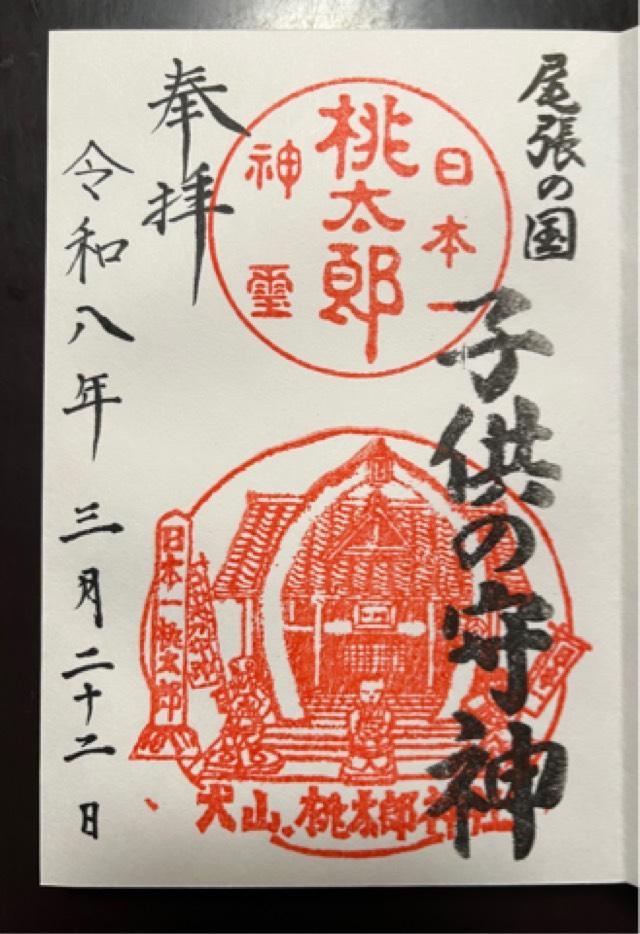 尾張の国
子供の守神
日本一
桃太郎
神霊
奉拝
令和八年 三月二十二日
日本一桃太郎
犬山 桃太郎神社